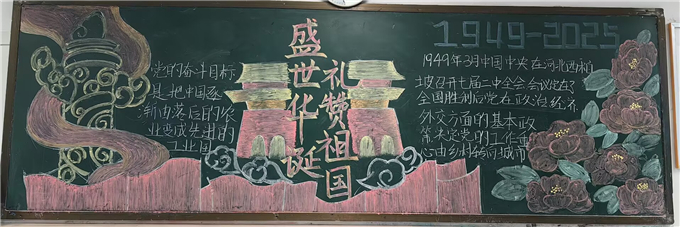 党的奋斗目标
是把中国逐
渐由落后的农
业变成先进的
工业国
盛世华诞
礼赞祖国
1949-2025
1949年3月中国中央在河北西柏
坡召开七届二中全会会议定在了
全国胜利后党在政治经济
外交方面的基本政
策决定党的工作重
心由乡村转向城市